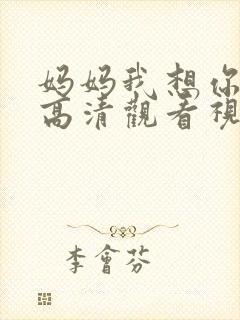 妈妈我想你
高清觀看視
李會芬